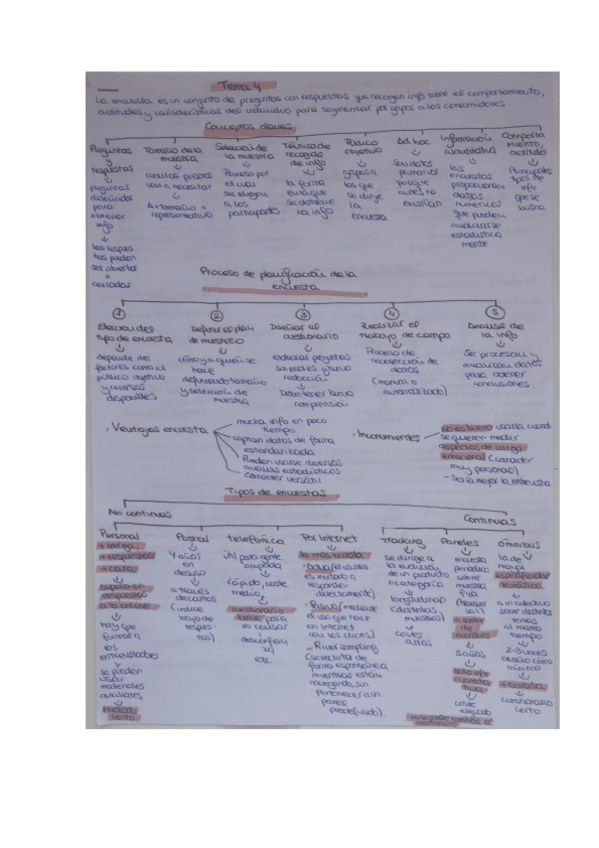 Tema 4
La encuesta es un conjunto de preguntas con respuestas que recogen info sobre el comportamiento,
actitudes y características del individuo para segmentar por grupos a los consumidores
Conceptos claves
Preguntas y respuestas
preguntas diseñadas para obtener info
las respuestas pueden ser abiertas o cerradas
Tamaño de la muestra
cuantas personas van a necesitar
A + tamaño + representativo
Selección de la muestra
Proceso por el cual se eligen a los participantes
Técnica de recogida de info
la forma en la que se obtiene la info
Público objetivo
grupo a los que se dirige la encuesta
Ad hoc
Son datos primarios porque antes no existían
Información cuantitativa
las encuestas proporcionan datos numéricos que pueden analizarse estadísticamente
Comportamiento, actitudes
Principales tipos de info que se busca
Proceso de planificación de la
encuesta
1 2 3 4 5
Elección del tipo de encuesta
depende de factores como el público objetivo y recursos disponibles
Definir el plan de muestreo
cómo y a quién se hace
definiendo tamaño y selección de muestra
Diseñar el cuestionario
elaborar preguntas
redacción
comprensión
Realizar el trabajo de campo
Proceso de recolección de datos
(manual o automatizado)
Análisis de la info
Se procesan y analizan datos para obtener conclusiones.
· Ventajas encuesta
mucha info en poco tiempo
captan datos de forma estandarizada
Pueden usarse diversos análisis estadísticos
Carácter versátil
· Inconvenientes
no es bueno usarla cuando se quieren medir aspectos de carga emocional (carácter muy personal)
- Sería mejor la entrevista
Tipos de encuestas
No continuas
Continuas
Personal
+ larga,
+ respuestas
+ cara
hay que formar a los entrevistadores
se pueden usar materiales auxiliares
Postal
en desuso
a través de cartas
(índice bajo de respuestas)
telefónica
útil para gente ocupada
rápido, coste medio
cuestionario breve para no causar desconfianza
etc.
Por Internet
la más barata
(el usuario es invitado a responder directamente)
(mediante el uso que hace en internet con los clicks)
· River sampling
(encuesta de forma espontánea mientras están navegando, sin pertenecer a un panel predefinido).
tracking
se dirige a la evolución de un producto o categoría
longitudinal
costes altos
Paneles
encuesta periódica sobre muestra fija
coste elevado
Omnibus
+ barata
cuestionario corto